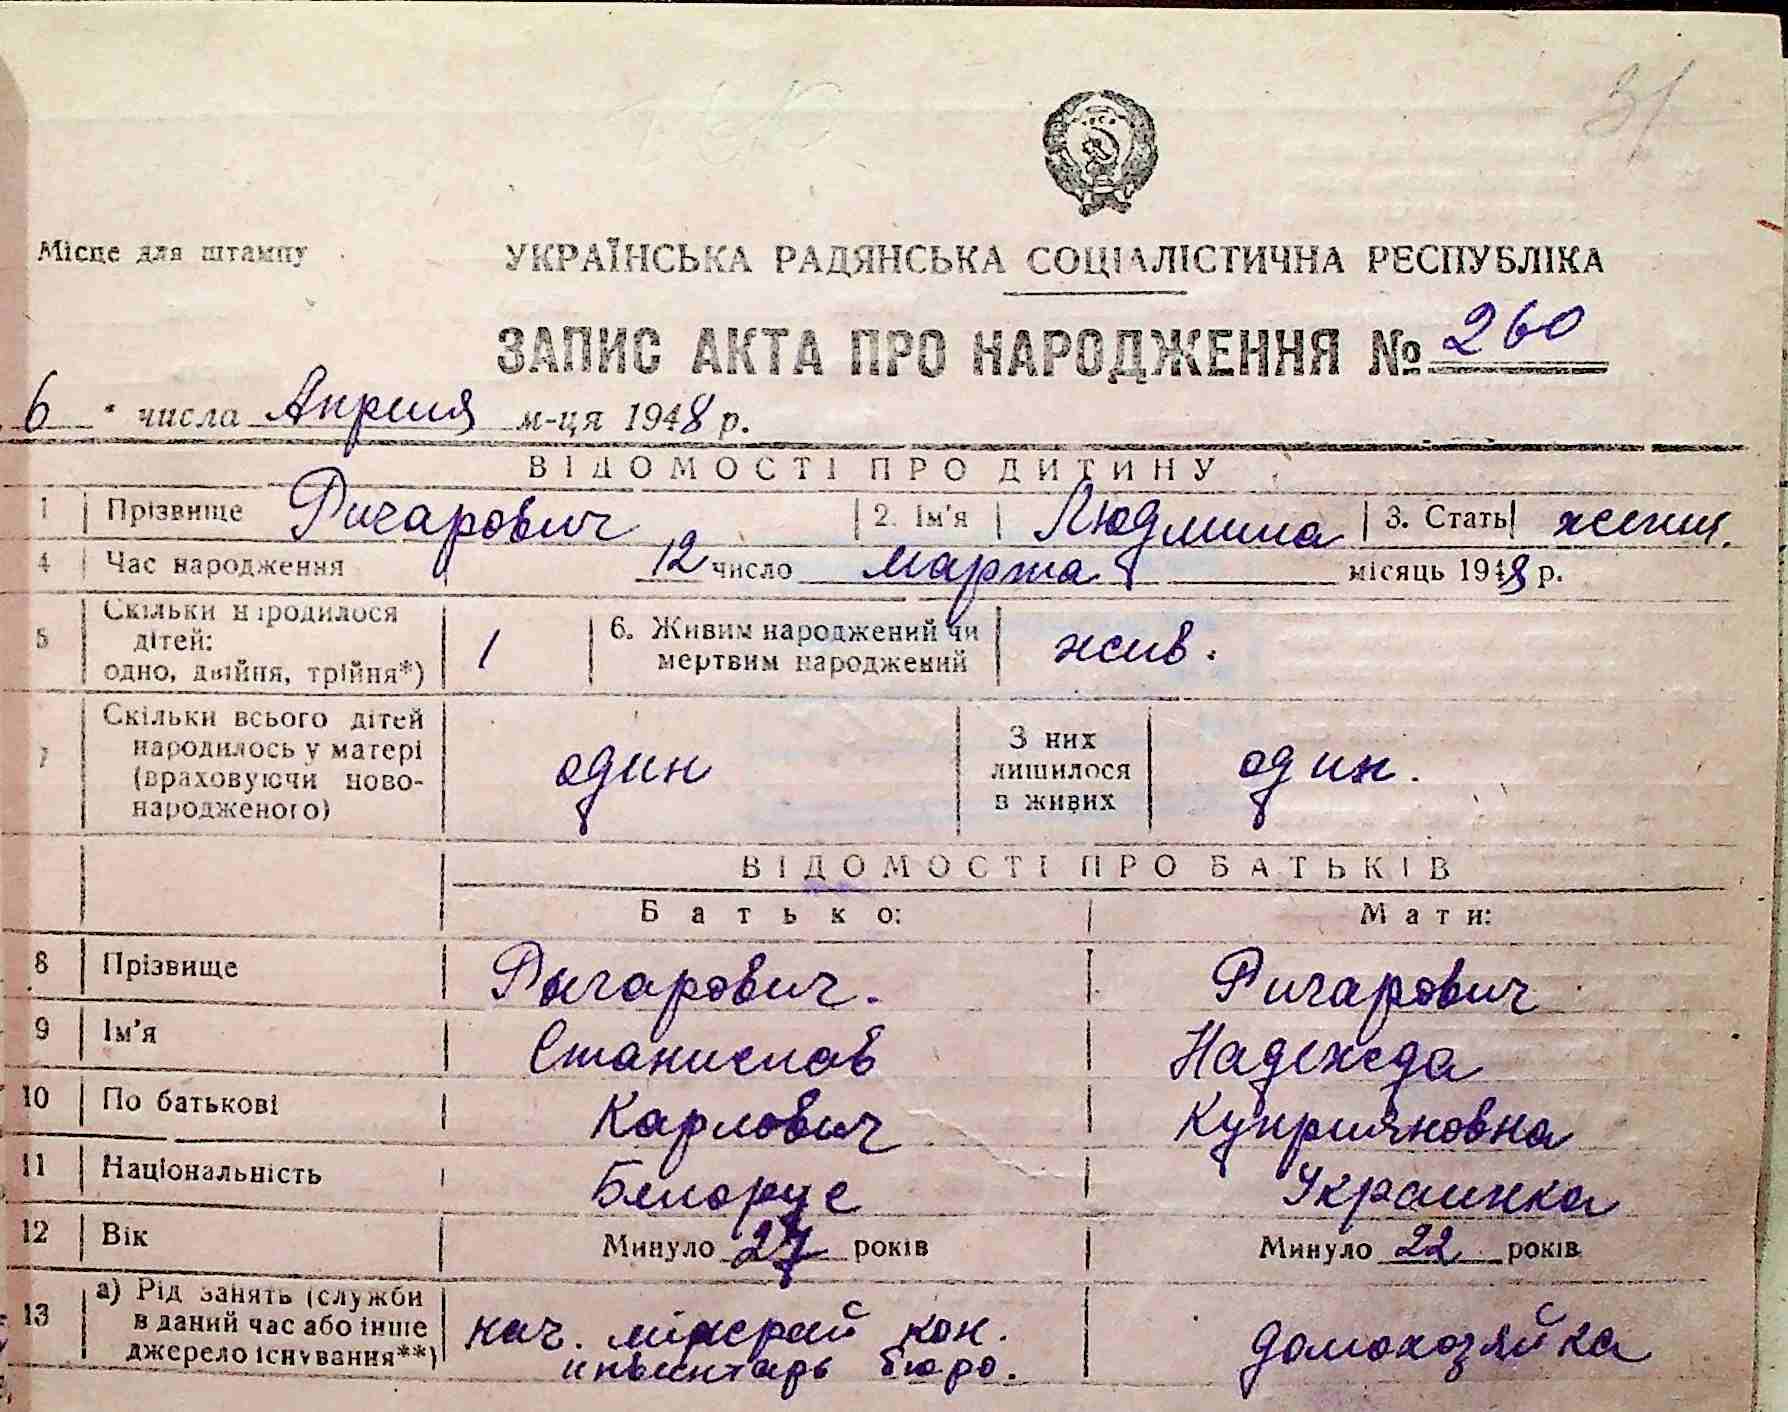 31
Місце для штампу
УКРАЇНСЬКА РАДЯНСЬКА СОЦІАЛІСТИЧНА РЕСПУБЛІКА
ЗАПИС АКТА ПРО НАРОДЖЕННЯ № 260
6 " числа Апреля м-ця 1948 р.
ВІДОМОСТІ ПРО ДИТИНУ
1 Прізвище Ричарович 2. Ім'я Людмила 3. Стать женщ.
4 Час народження 12 число марта місяць 1948 р.
5 Скільки народилося
дітей:
одно, двійня, трійня*) 1 6. Живим народжений чи
мертвим народжений жив.
7 Скільки всього дітей
народилось у матері
(враховуючи ново-
народженого) один З них
лишилося
в живих один.
ВІДОМОСТІ ПРО БАТЬКІВ
Батько: Мати:
8 Прізвище Ричарович. Ричарович
9 Ім'я Станислав Надежда
10 По батькові Карлович Куприяновна
11 Національність Белорус Украинка
12 Вік Минуло 27 років Минуло 22 років
13 а) Рід занять (служби
в даний час або інше
джерело існування**) нач. кон.
инвентарь бюро. домохозяйка